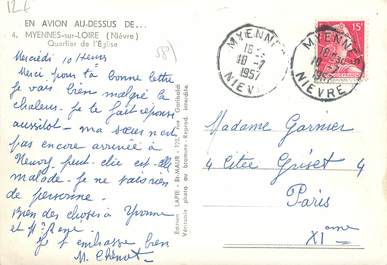 EN AVION AU-DESSUS DE...
4. MYENNES-sur-LOIRE (Nièvre)
Quartier de l'Église
Mercredi 10 Heures
Merci pour ta bonne lettre
je vais bien malgré la
chaleur je te fait réponse
aussitot - ma sœur n'est
pas encore arrivée à
Neuvy peut-être est-elle
malade. je ne vais rien
de personne.
Bien des choses à Yvonne
et Mr René.
Je t'embrasse bien
M. Chénot
Edition LAPIE - St-MAUR - 152, rue Garibaldi
Véritable photo au bromure - Reprod. interdite.
MYENNES
18
10 -7
1957
NIEVRE
MYENNES
10 -7
1957
NIEVRE
15F
Madame Garnier
4 Citée Griset 4
Paris
XI ème